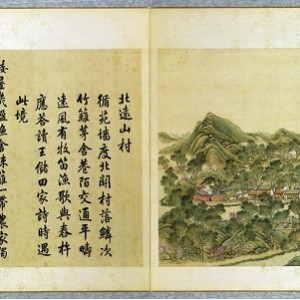 北遠山村
循苑墻度北關村落鱗次
竹籬茅舍巷陌交通平疇
遠風有牧笛漁歌與舂杵
應答讀王儲田家詩時遇
此境
矮屋幾楹漁舍疎籬一帶農家獨